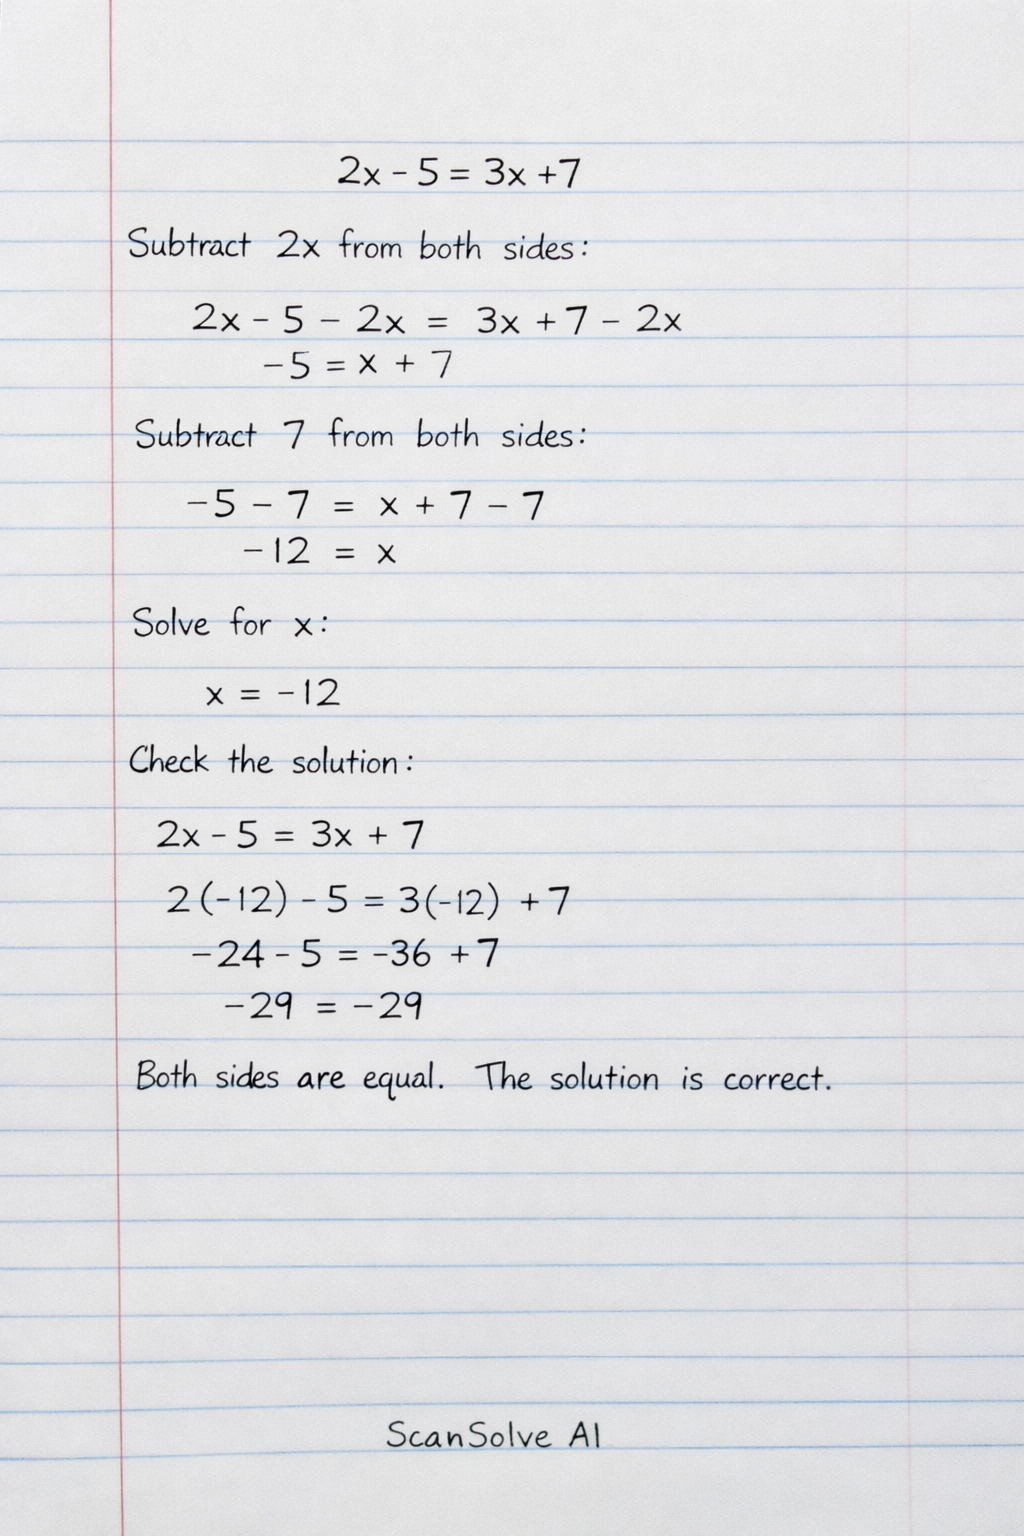 2x - 5 = 3x +7
Subtract 2x from both sides:
2x - 5 - 2x = 3x + 7 - 2x
-5 = x + 7
Subtract 7 from both sides:
-5 - 7 = x + 7 - 7
-12 = x
Solve for x:
x = -12
Check the solution:
2x - 5 = 3x + 7
2(-12) - 5 = 3(-12) + 7
-24 - 5 = -36 + 7
-29 = -29
Both sides are equal. The solution is correct.
ScanSolve AI